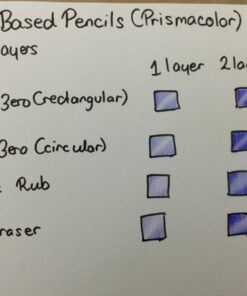 Based Pencils (Prismacolor)
ayers
1 layer 2 la
Zero (rectangular)
Zero (circular)
Rub
raser